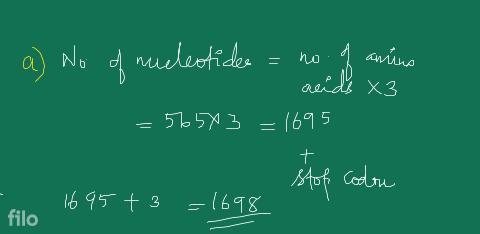 a) No of nucleotides = no. of amino
acids ×3
= 565×3 = 1695
+
stop codon
1695 + 3 = 1698
filo